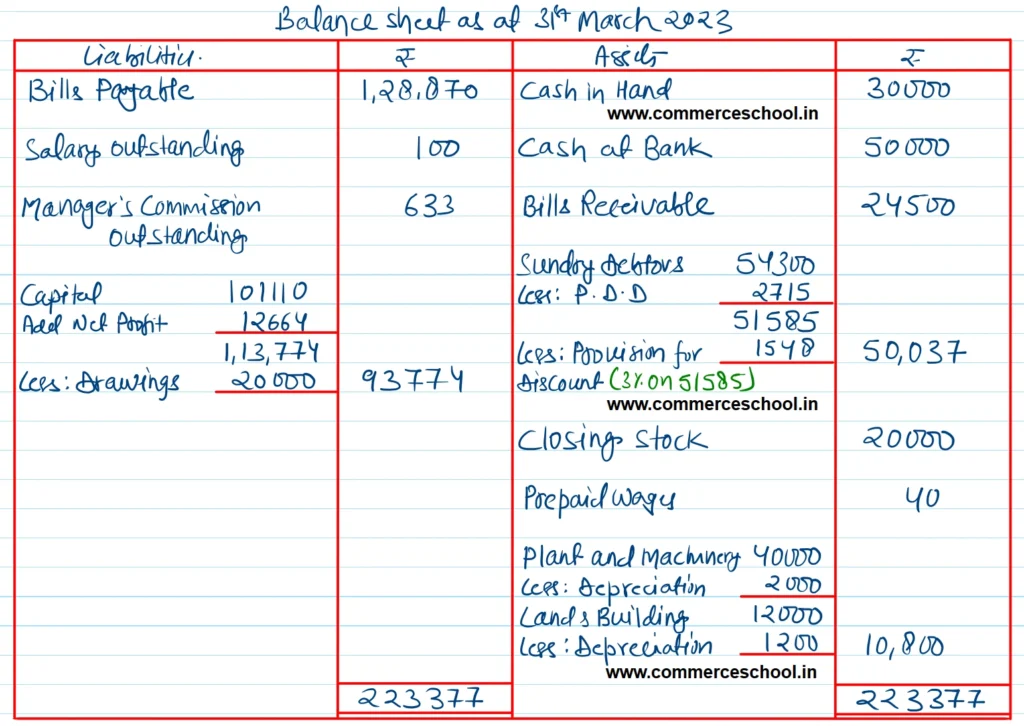 Balance sheet as at 31st March 2023
Liabilities. ₹ Assets ₹
Bills Payable 1,28,870 Cash in Hand 30000
www.commerceschool.in
Salary outstanding 100 Cash at Bank 50000
Manager's Commission 633 Bills Receivable 24500
outstanding
Sundry Debtors 54300
Capital 101110 Less: P.D.D 2715
Add Net Profit 12664 51585
1,13,774 Less: Provision for 1548 50,037
Less: Drawings 20000 93774 Discount (3% on 51585)
www.commerceschool.in
Closing Stock 20000
Prepaid Wages 40
Plant and Machinery 40000
Less: Depreciation 2000
Land & Building 12000
Less: Depreciation 1200 10,800
www.commerceschool.in
223377 223377